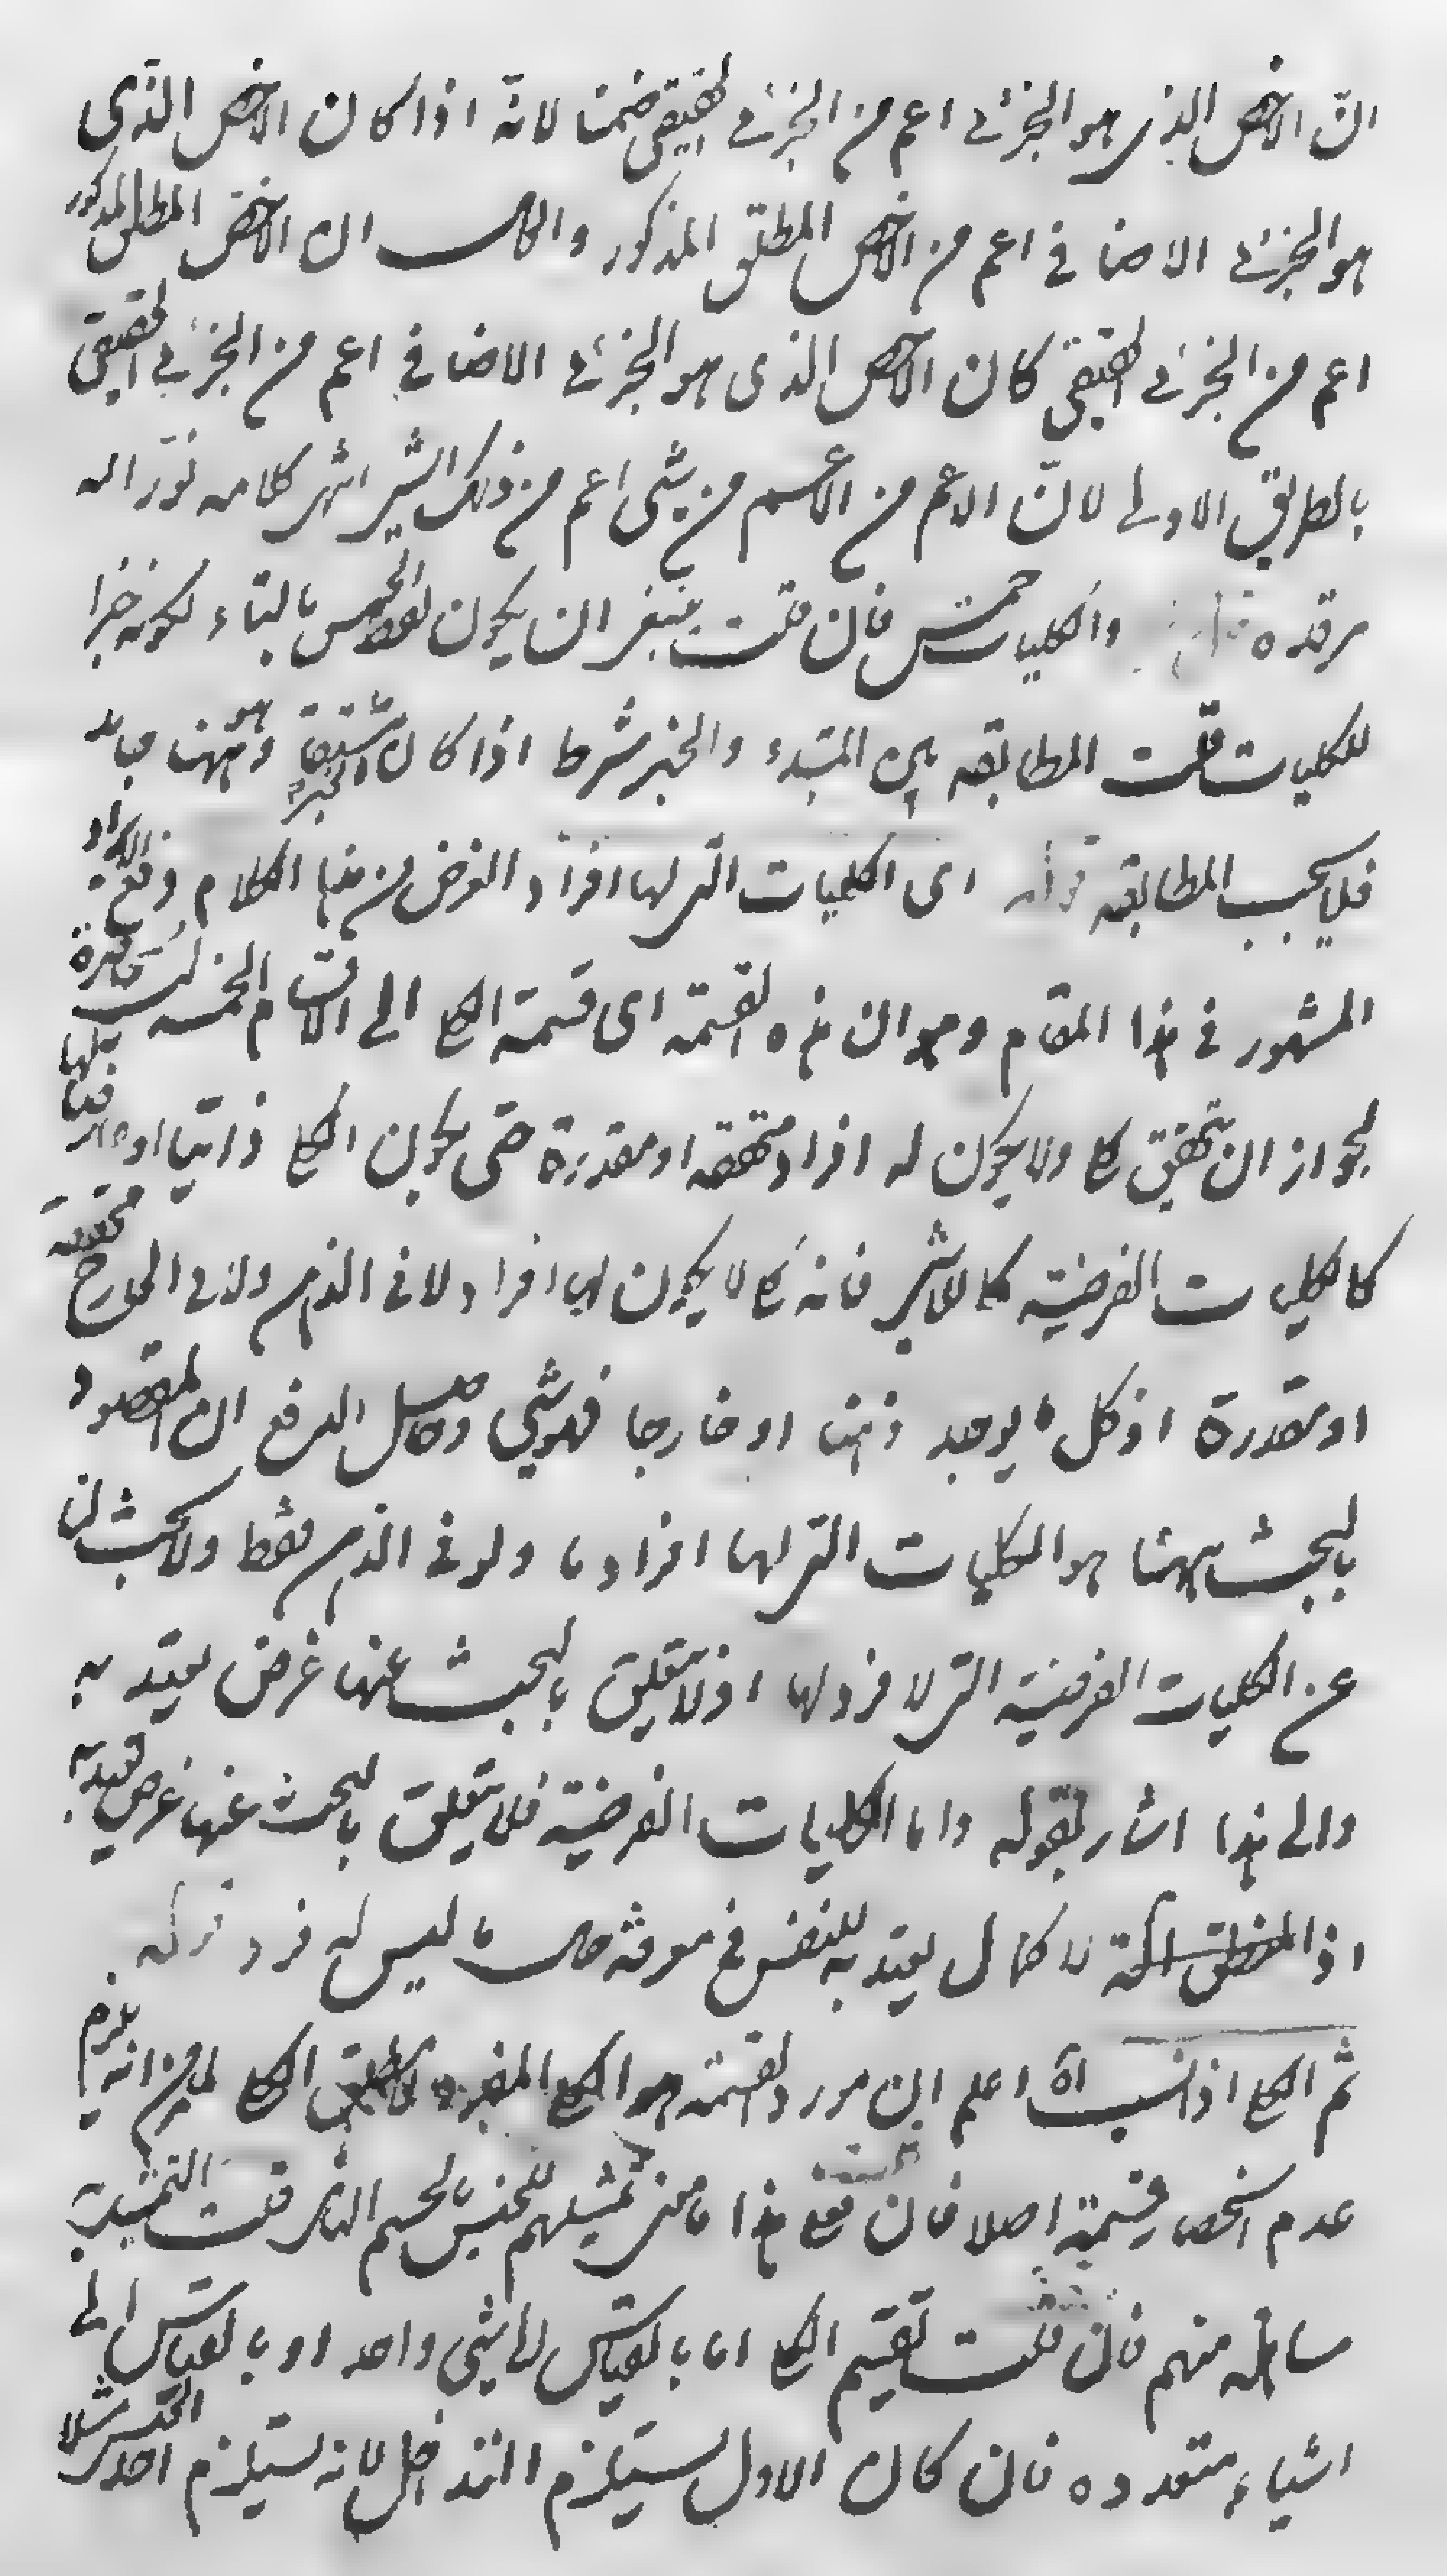 انّ الاخص الذى هو الجزئے اعم من الجزئے الحقيقى ضمنا لانّه اذا كان الاخص الذى
هو الجزئے الاضافے اعم من الاخص المطلق المذكور والحال ان الاخص المطلق المذكور
اعم من الجزئے الحقيقى كان الاخص الذى هو الجزئے الاضافے اعم من الجزئے الحقيقى
بالطريق الاولے لانّ الاعم من الاعم من شئى اعم من ذلك الشئ انتهى كلامه نوّر اله
مرقده قوله والكليات خمس فان قلت ينبغى ان يكون لفظ الخمس بالتاء لكونه خبرا
للكليات قلت المطابقه بين المبتدء والخبر شرط اذا كان الخبر مشتقا وههنا جامد
فلا يجب المطابقه قوله اى الكليات التى لها افراد الغرض من هذا الكلام دفع الايراد
المشهور فى هذا المقام وهو ان هذه القسمة اى قسمة الكلے الى الاقسام الخمسه ليست حاصرة
لجواز ان يتحقق كلے ولا يكون له افراد محققه او مقدرة حتى يكون الكلے ذاتيا لها او عرضيا
كالكليات الفرضية كاللاشئ فانه كلے لا يكون لها افراد لا فى الذهن ولا فى الخارج محققة
او مقدرة اذ كل ما يوجد ذهنا او خارجا فهو شئى وحاصل الدفع ان المقصود
بالبحث ههنا هو الكليات التى لها افراد ما ولو فى الذهن فقط ولا بحث لنا
عن الكليات الفرضية التى لا فرد لها اذ لا يتعلق بالبحث عنها غرض يعتد به
والى هذا اشار بقوله واما الكليات الفرضية فلا يتعلق بالبحث عنها غرض يعتد به
اذ لا كمال يعتد به للنفس فى معرفة حال ما ليس له فرد قوله
ثم الكلے اذا نسب اه اعلم ان مورد القسمة هو الكلے المفرد لا مطلق الكلے لما من انه يلزم
عدم انحصار قسمة اصلا فان قلت فعلے هذا ما معنى تمثيلهم للجنس بالجسم النامى قلت التمثيل به
مسامحة منهم فان قلت تقسيم الكلے اما بالقياس الى شئى واحد او بالقياس الى
اشياء متعدده فان كان الاول يستلزم التداخل لانه يستلزم احد